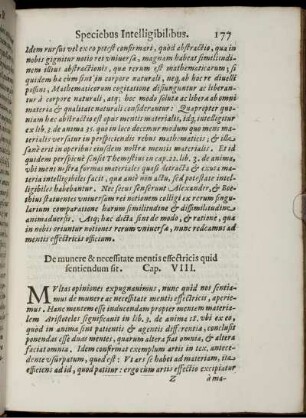 Speciebus Intelligibilibus. 177
Idem rursus vel ex eo potest confirmari, quòd abstractio, qua in
nobis gignitur notio rei vniuersæ, magnam habeat similitudi-
nem illius abstractionis, quæ rerum est mathematicarum; si
quidem hæ cum sint in corpore naturali, neq; ab hoc re diuelli
possint, Mathematicorum cogitatione disiunguntur ac liberan-
tur à corpore naturali, atq; hoc modo solutæ ac liberæ ab omni
materia & qualitate naturali considerantur: Quapropter quo-
niam hæc abstractio est opus mentis materialis, idq; intelligitur
ex lib. 3. de anima 35. quo in loco decernit modum quo mens ma-
terialis versetur in perspiciendis rebus mathematicis; & illa
sanè erit in operibus eiusdem nostræ mensis materialis. Et id
quidem perspicuè scripsit Themistius in cap. 22. lib. 3. de anima,
vbi mens nostra formas materiales quasi detractas & exutas ma-
teria intelligibiles facit, quæ antè non actu, sed potestate intel-
ligibiles habebantur. Nec secus senserunt Alexander, & Boë-
thius statuentes vniuersam rei notionem colligi ex rerum singu-
larium comparatione harum similitudine & dissimilitudine
animaduersis. Atq; hæc dicta sint de modo, & ratione, qua
in nobis oriuntur notiones rerum vniuersæ, nunc redeamus ad
mentis effectricis officium.
De munere & necessitate mentis effectricis quid
sentiendum sit. Cap. VIII.
MVltas opiniones expugnauimus, nunc quid nos sentia-
mus de munere ac necessitate mentis effectricis, aperie-
mus. Hanc mentem esse inducendam propter mentem materia-
lem Aristoteles significauit in lib. 3. de anima 17. vbi ex eo,
quòd in anima sint patientis & agentis differentia, conclusit
ponendas esse duas mentes, quarum altera fiat omnia, & altera
faciat omnia. Idem confirmat exemplum artis in tex. antece-
dente vsurpatum, quod est: Vt ars se habet ad materiam, ita
efficiens ad id, quod patitur: ergo cum artis effectio excipiatur
Z à ma-